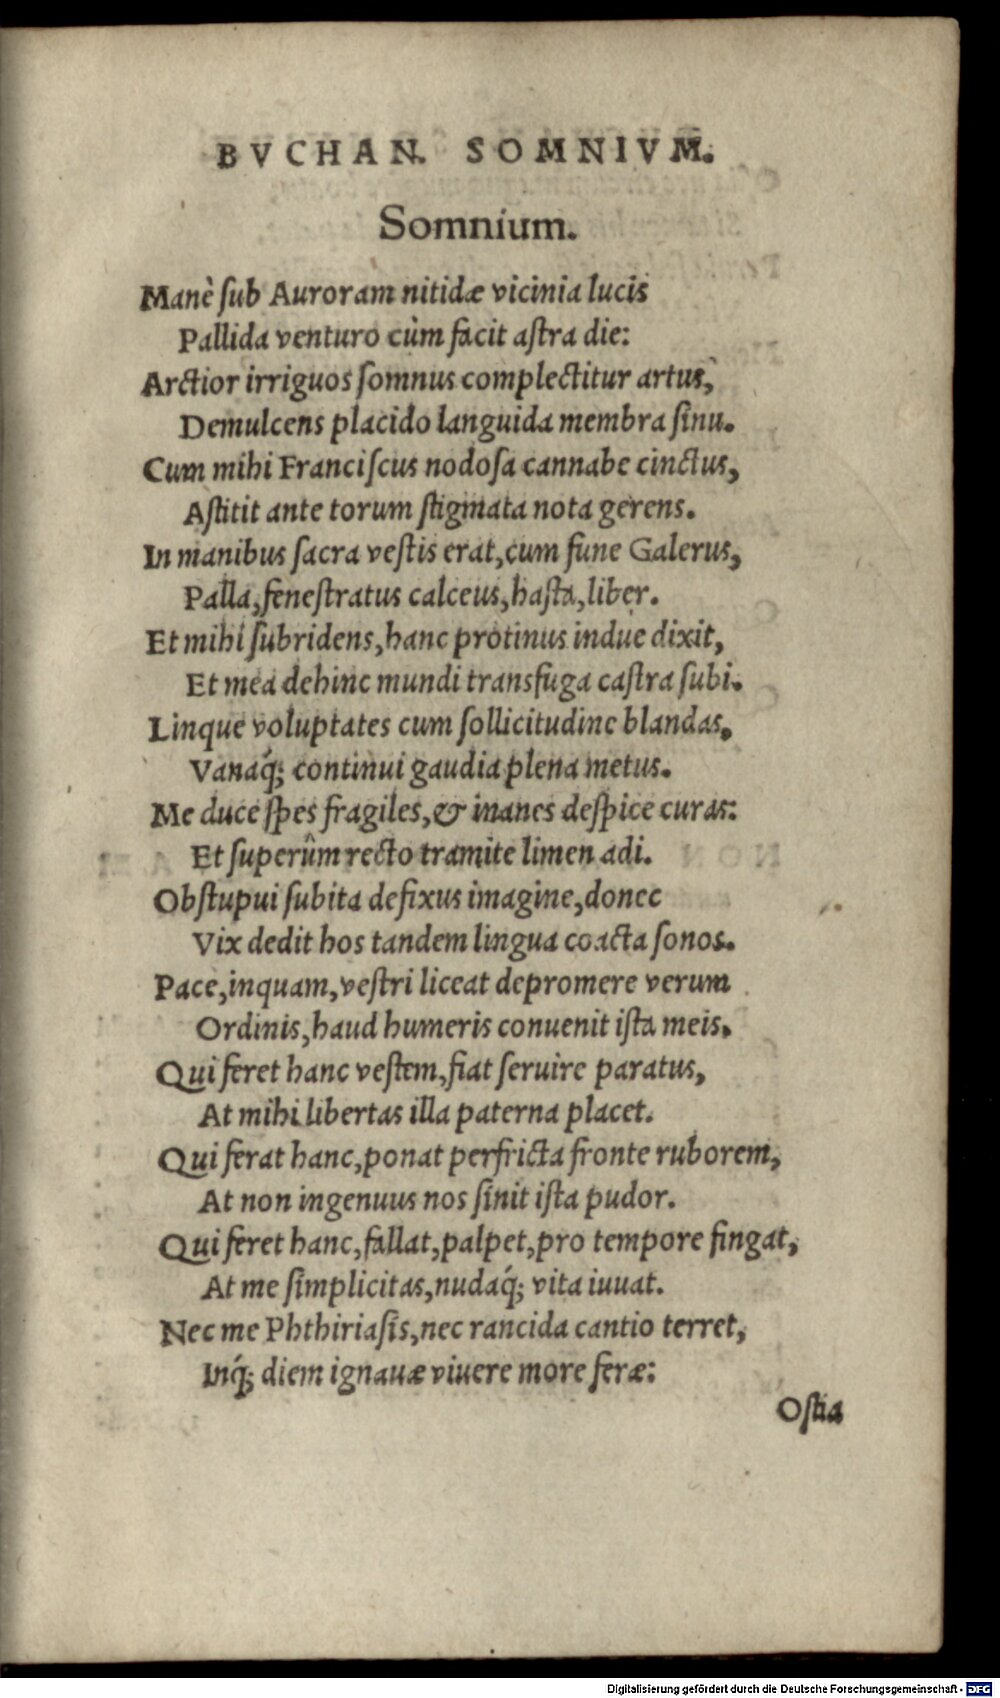 BVCHAN. SOMNIVM.
Somnium.
Manè ſub Auroram nitidæ vicinia lucis
Pallida venturo cùm facit aſtra die:
Arctior irriguos ſomnus complectitur artus,
Demulcens placido languida membra ſinu.
Cum mihi Franciſcus nodoſa cannabe cinctus,
Aſtitit ante torum ſtigmata nota gerens.
In manibus ſacra veſtis erat, cum fune Galerus,
Palla, feneſtratus calceus, haſta, liber.
Et mihi ſubridens, hanc protinus indue dixit,
Et mea dehinc mundi transfuga caſtra ſubi.
Linque voluptates cum ſollicitudine blandas,
Vanaq́; continui gaudia plena metus.
Me duce ſpes fragiles, & inanes deſpice curas:
Et ſuperûm recto tramite limen adi.
Obſtupui ſubita defixus imagine, donec
Vix dedit hos tandem lingua coacta ſonos.
Pace, inquam, veſtri liceat depromere verum
Ordinis, haud humeris conuenit iſta meis.
Qui feret hanc veſtem, fiat ſeruire paratus,
At mihi libertas illa paterna placet.
Qui ferat hanc, ponat perfricta fronte ruborem,
At non ingenuus nos ſinit iſta pudor.
Qui feret hanc, fallat, palpet, pro tempore fingat,
At me ſimplicitas, nudaq́; vita iuuat.
Nec me Phthiriaſis, nec rancida cantio terret,
Inq́; diem ignauæ viuere more feræ:
Oſtia
Digitalisierung gefördert durch die Deutsche Forschungsgemeinschaft - DFG